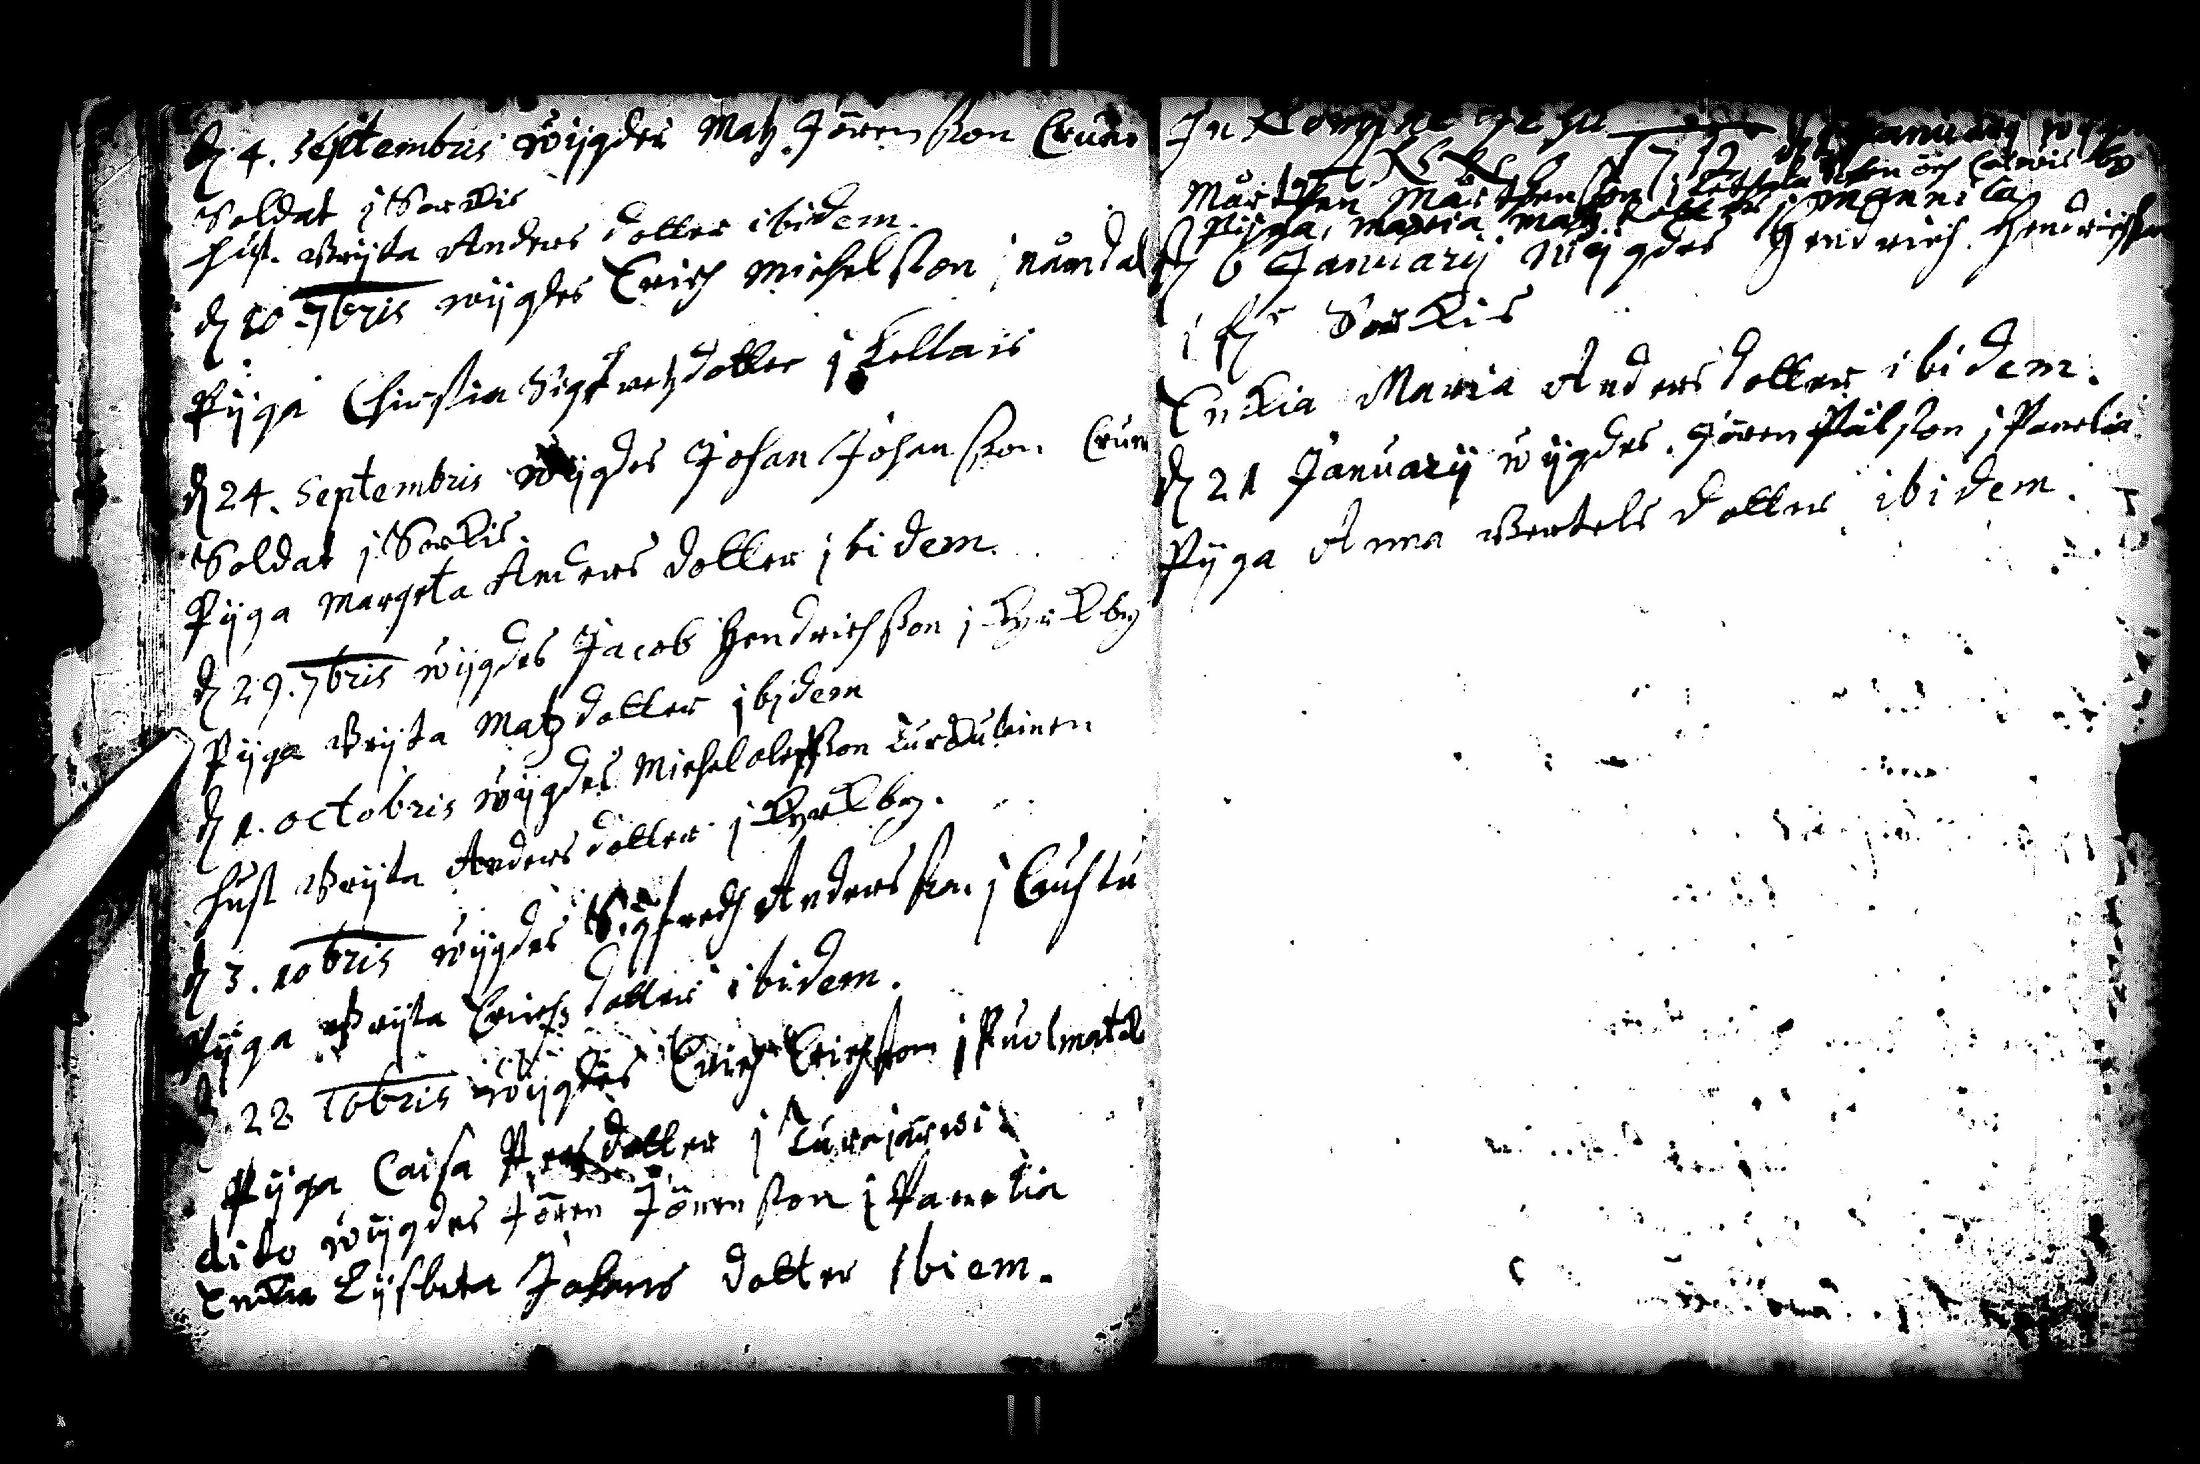 d. 4. Septembris wijgdes Matz Jörensson
Soldat j Sorkis
hust. Brijta Anders dotter ibidem.
d. 10 7bris wijgdes Erich Michelsson j
Pijga Chirstin Sigfretzdotter j Kellais
d. 24. Septembris wijgdes Johan Johansson
Soldat j Sorkis.
Pijga Margeta Anders dotter jbidem.
d. 29. 7bris wijgdes Jacob Hendrichsson j Kyrkby
Pijga Brijta Matzdotter jbidem
d. 1. octobris wijgdes Michel olefsson
hust Brijta Anders dotter j Kyrkby.
d. 3. 10bris wijgdes Sigfredh Andersson j
Pijga Brijta Erichzdotter ibidem.
d. 28 10bris wijgdes Erich Erichsson j
Pijga Caisa dotter j Turajärwi
dito wijgdes Jören Jörensson j Panelia
Enkia Lijsbeta Johans dotter Ibiem.
In Nomine Jesu
1712 Januarij
Mårthen Mårthensson
Pijga, Maria Matz dotter j Mannila
d. 6 Januarij wijgdes Hendrich Hendrichsson
i Sorkis
Enkia Maria Anders dotter ibidem.
d. 21 Januarij wijgdes Jören Pålsson j Panelia
Pijga Anna Bertels dotter ibidem.